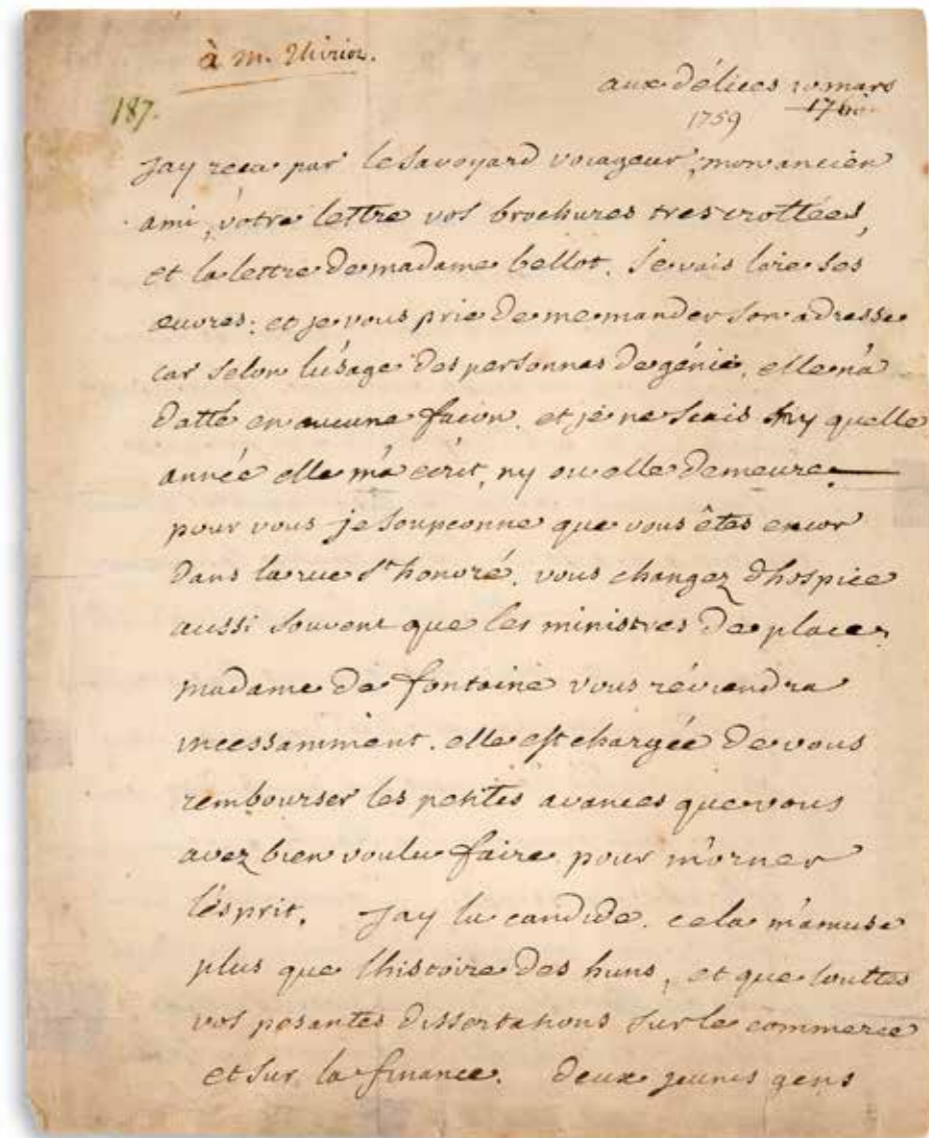 à m. Thiriot.
aux délices 10 mars
187.
1759 1760
Jay recu par le Savoyard voiageur, mon ancien
ami, vôtre lettre vos brochures tres crottées,
et la lettre de madame bellot. Je vais lire ses
œuvres; et je vous prie de me mander son adresse
car selon lusage des personnes de génie, elle n'a
datté en aucune facon, et je ne scais ny quelle
année elle m'a écrit, ny ou elle demeure.
pour vous je soupconne que vous êtes encor
dans la rue St honoré. vous changez d'hospice
aussi souvent que les ministres de place.
madame de fontaine vous reviendra
incessamment. elle est chargée de vous
rembourser les petites avances que vous
avez bien voulu faire pour m'orner
l'esprit. Jay lu candide. cela m'amuse
plus que lhistoire des huns, et que touttes
vos pesantes dissertations sur le commerce
et sur la finance. deux jeunes gens